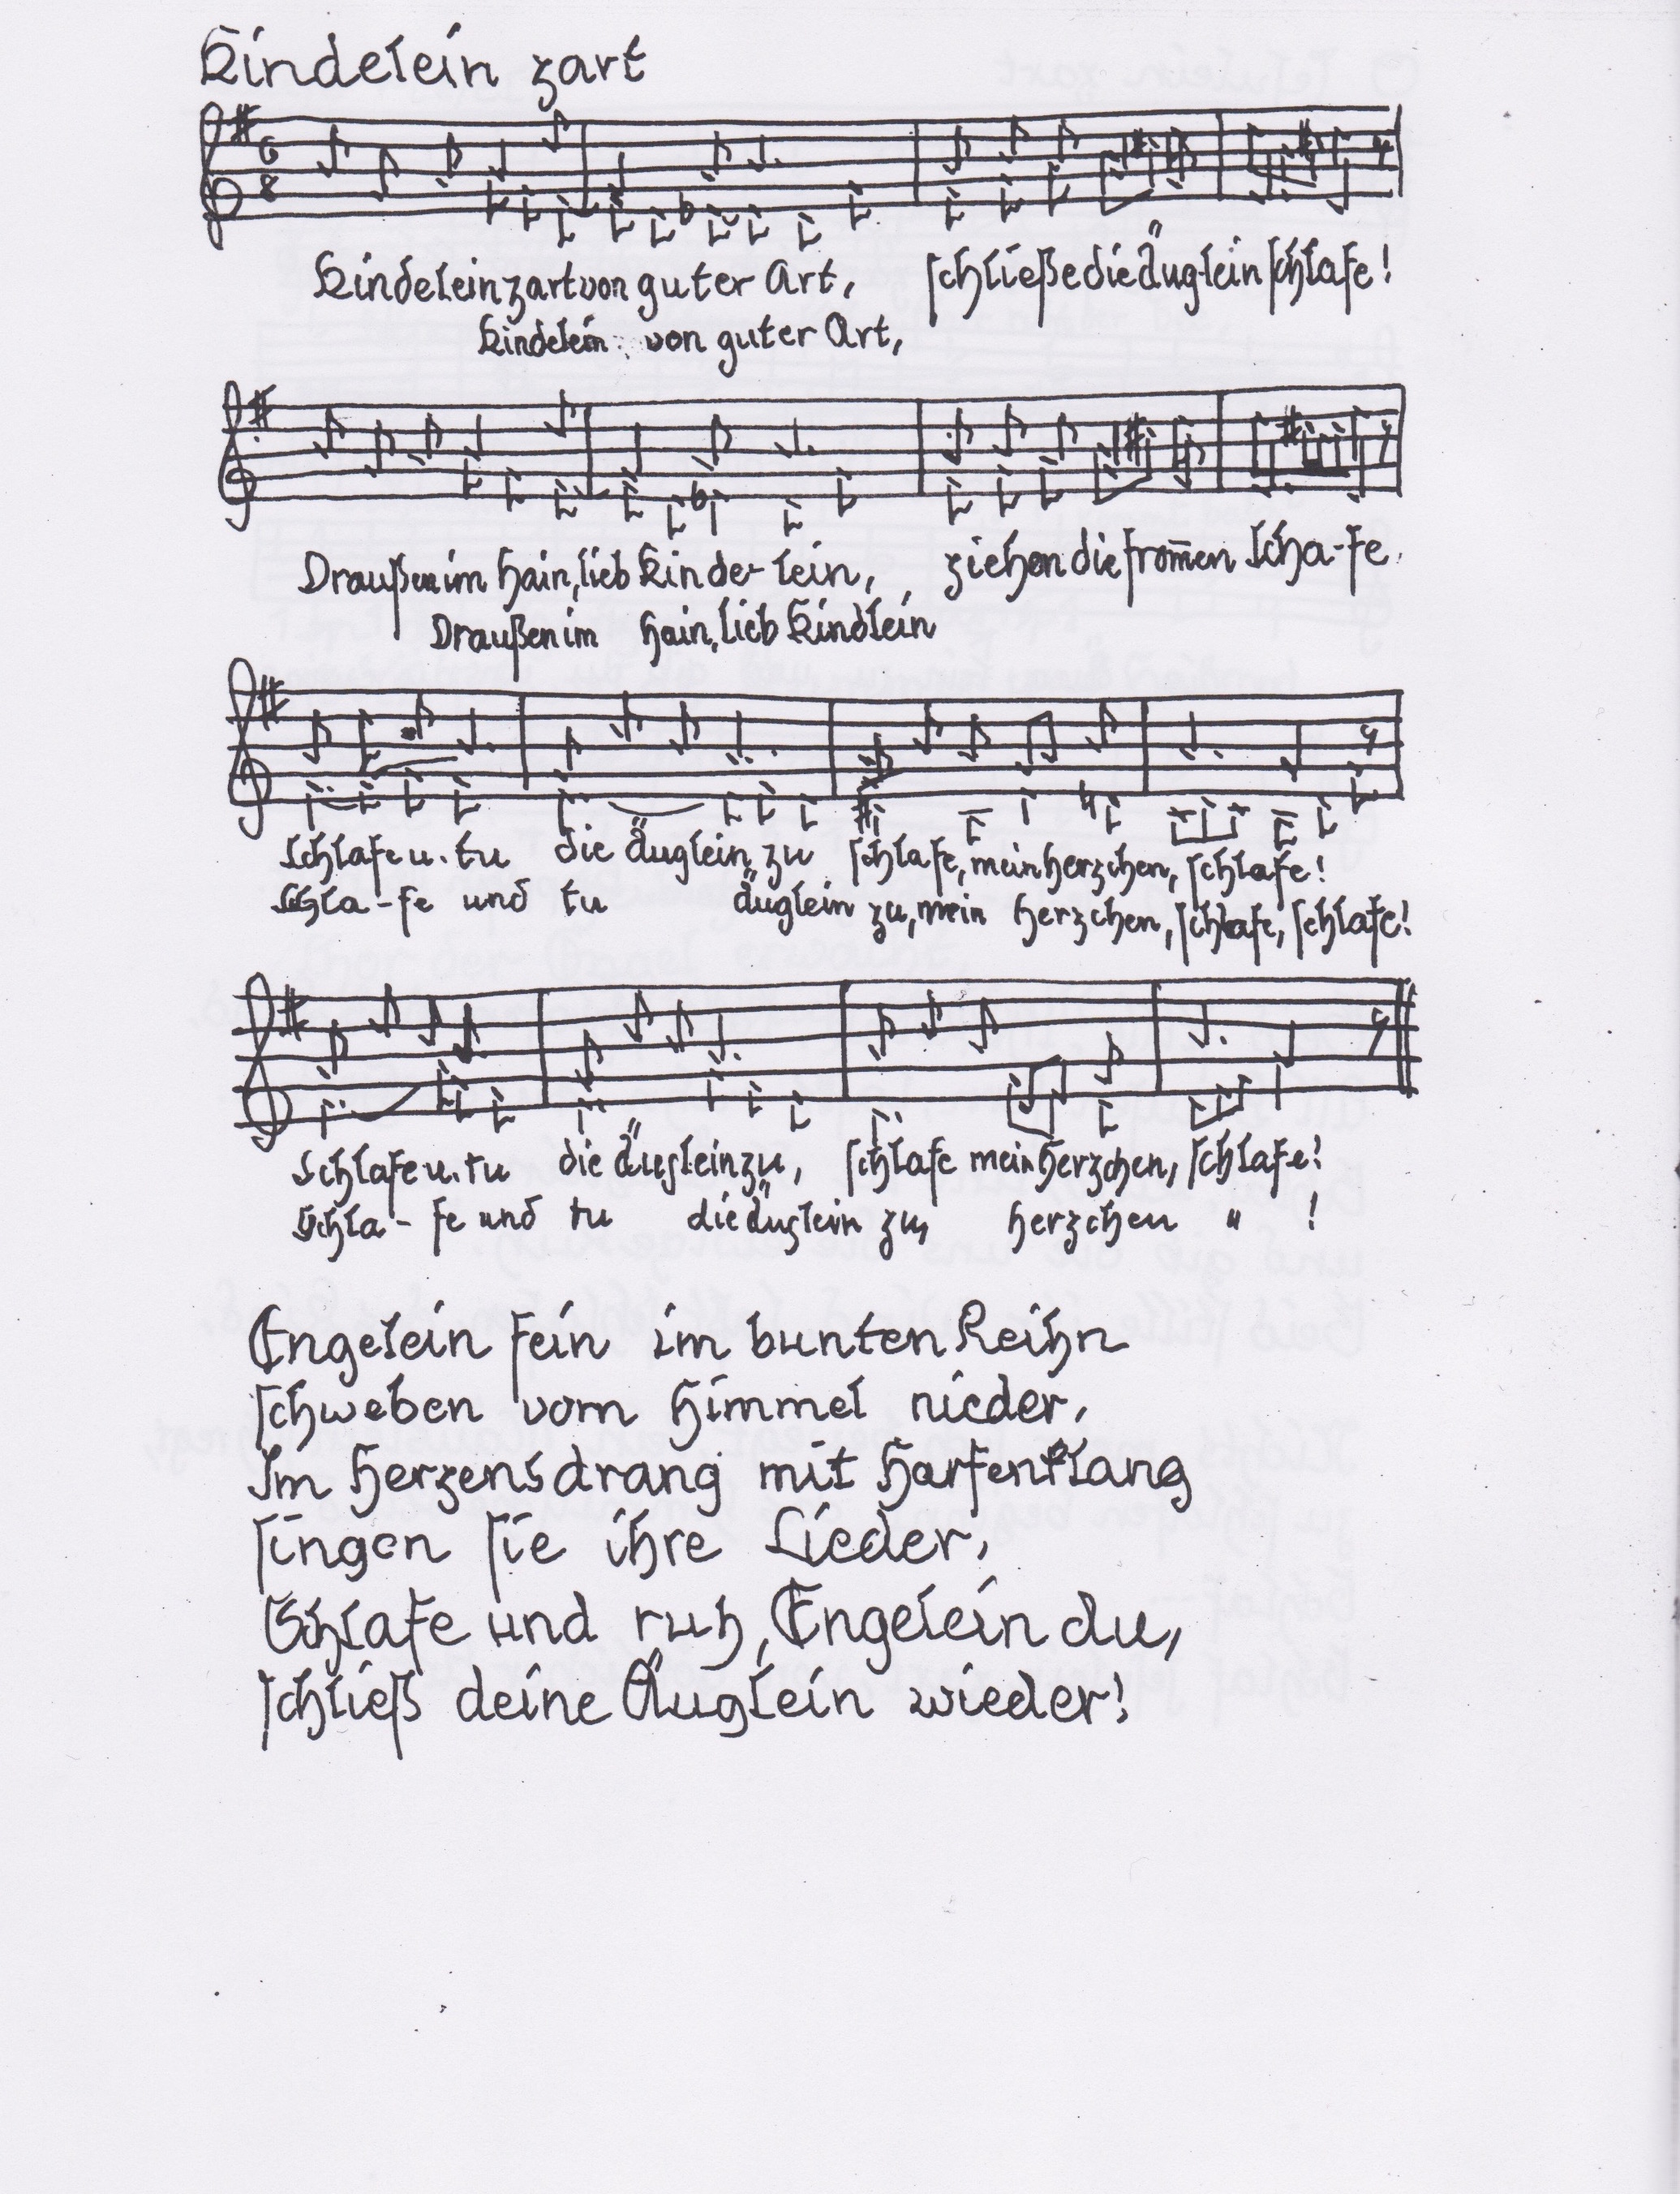 Kindelein zart
6
8
Kindelein zart von guter Art, schließe die Äuglein schlafe!
Kindelein von guter Art,
Draußen im Hain, lieb Kinde-lein, ziehen die from̅en Scha-fe.
Draußen im Hain, lieb Kindlein
Schlafe u. tu die Äuglein zu schlafe, mein Herzchen, schlafe!
Schla-fe und tu Äuglein zu, mein Herzchen, schlafe, schlafe!
Schlafe u. tu die Äuglein zu, schlafe mein Herzchen, schlafe!
Schla-fe und tu die Äuglein zu, Herzchen " !
Engelein fein im bunten Reihn
schweben vom Himmel nieder,
Im Herzensdrang mit Harfenklang
singen sie ihre Lieder,
Schlafe und ruh, Engelein du,
schließ deine Äuglein wieder!